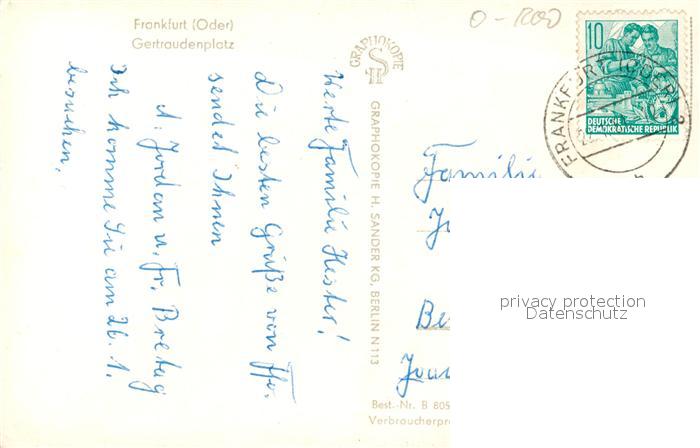 Frankfurt (Oder)
Gertraudenplatz
Werte Familie Hester!
Die besten Grüße von Ffo.
sendet Ihnen
A. Jordan u. Fr. Bretag
Ich komme Sie am 26. 1.
besuchen.
GRAPHOKOPIE
GRAPHOKOPIE H. SANDER KG, BERLIN N 113
10
DEUTSCHE
DEMOKRATISCHE REPUBLIK
FRANKFURT (ODER) 2
Familie
Be
privacy protection
Datenschutz
Best.-Nr. B 805
Verbraucherpr